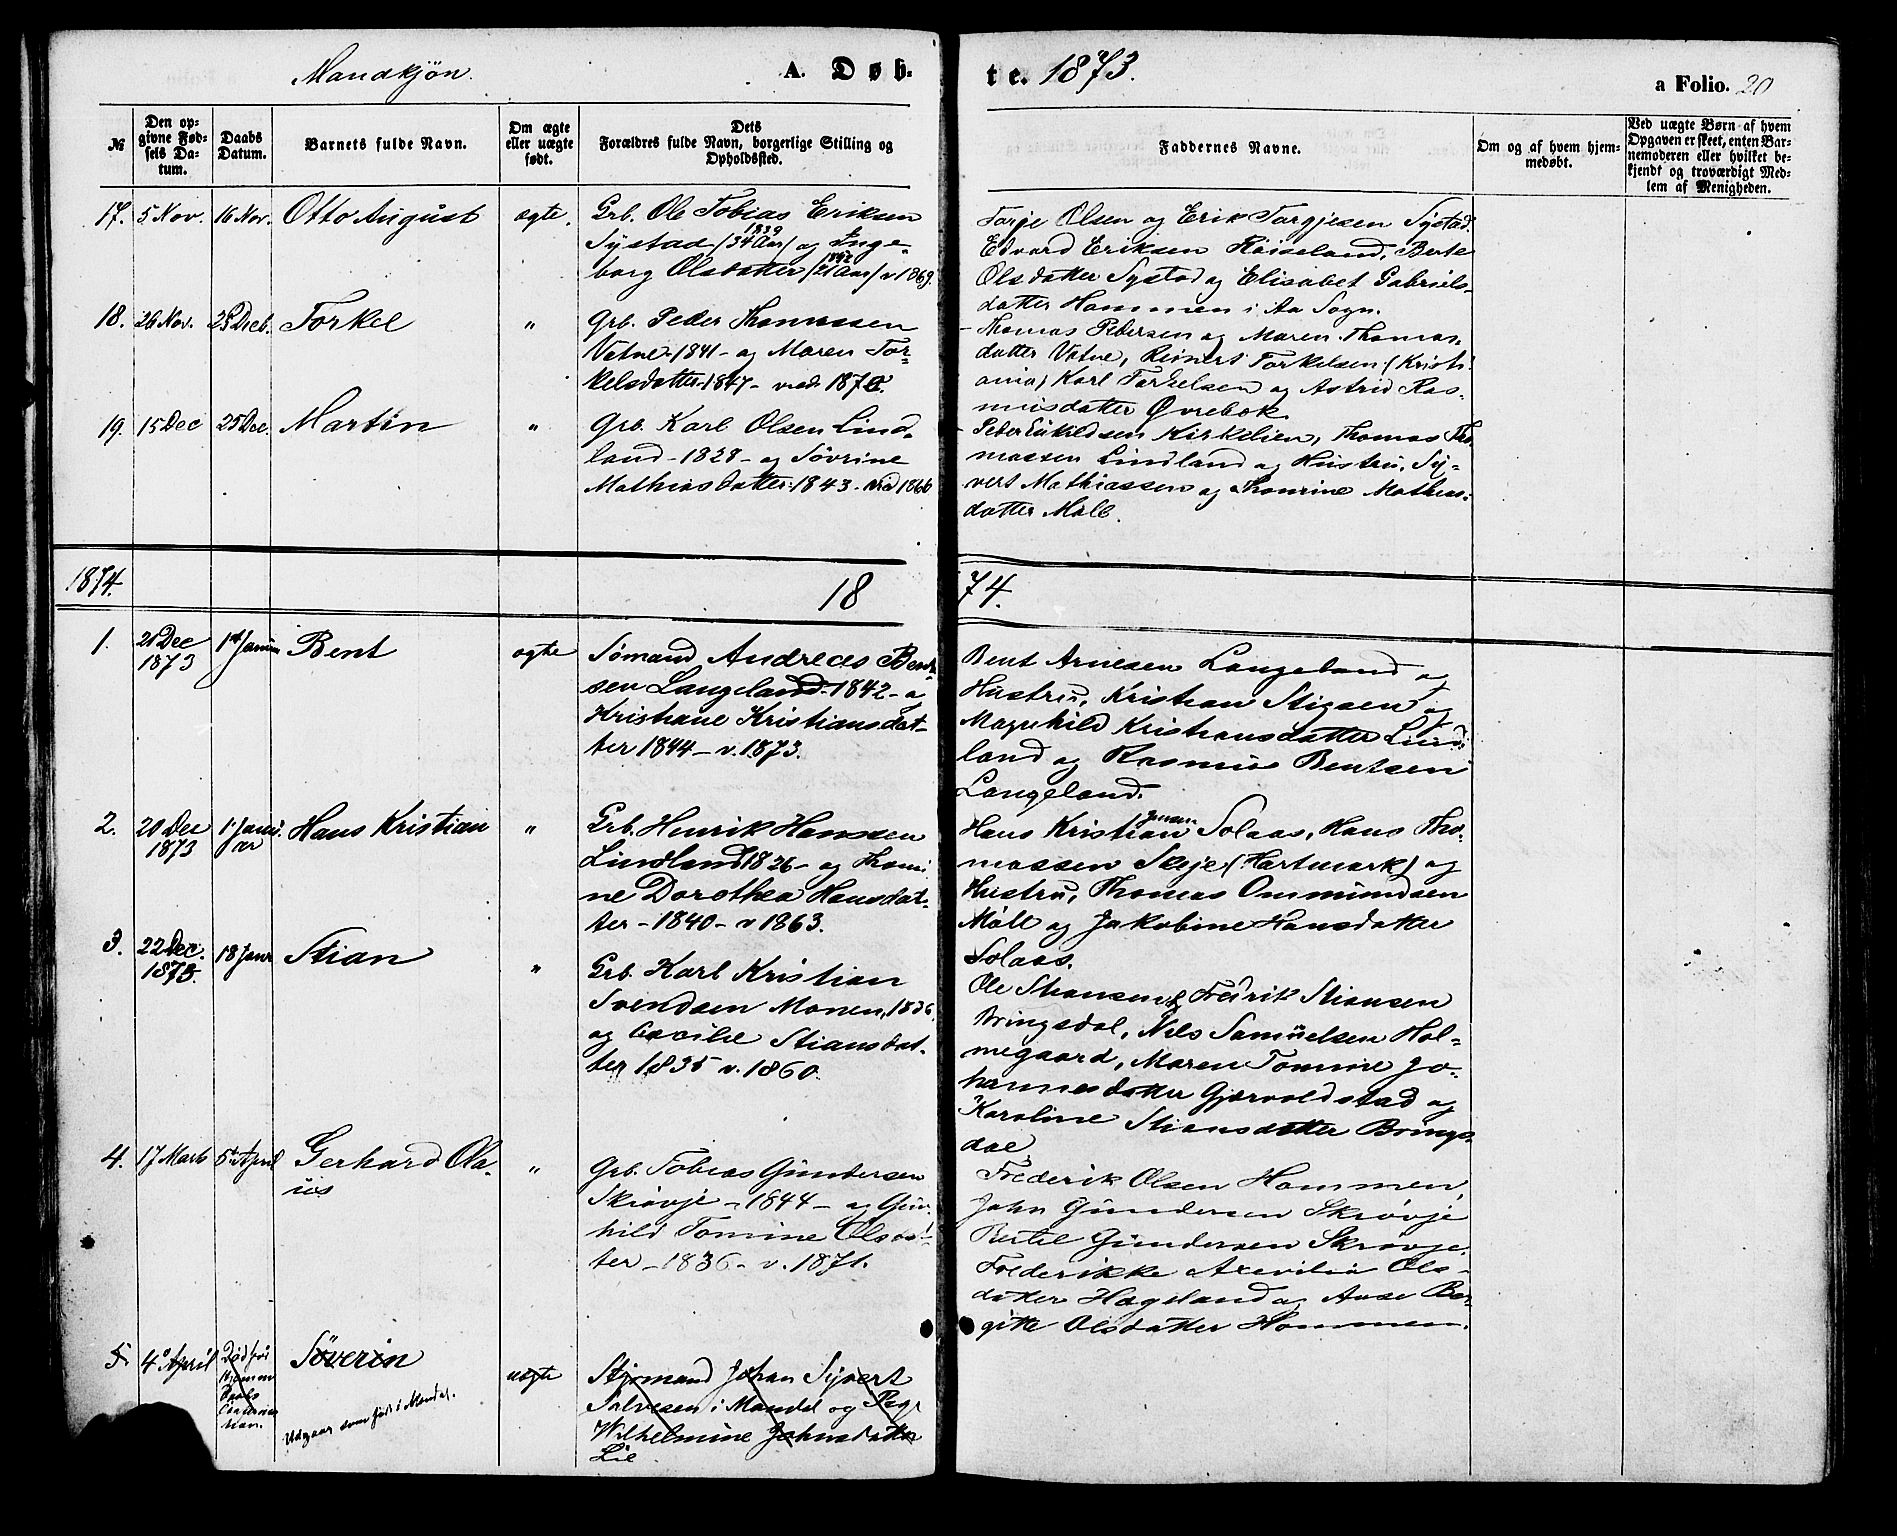 Mandkjøn.
A. Døb-
te. 1873.
a Folio. 20
№
Den op-
givne Fød-
sels Da-
tum.
Daabs
Datum.
Barnets fulde Navn.
Om ægte
eller uægte
født.
Dets
Forældres fulde Navn, borgerlige Stilling og
Opholdssted.
Faddernes Navne.
Om og af hvem hjem-
medøbt.
Ved uægte Børn af hvem
Opgaven er skeet, enten Bar-
nemoderen eller hvilket be-
kjendt og troværdigt Med-
lem af Menigheden.
17. 5 Nov. 16 Nov. Otto August ægte.
Grb. Ole Tobias Eriksen
Systad (34 Aar) 1839 og Inge-
borg Olsdatter (21 Aar) 1852 v 1869.
Torje Olsen og Erik Torgjesen Systad.
Edvard Eriksen Røiseland, Berte
Olsdatter Systad og Elisabet Gabriels-
datter Hommen i Aa Sogn.
18. 26 Nov. 25 Dec. Torkel "
Grb. Peder Thomassen
Vatne 1841 - og Maren Tor-
kelsdatter 1847 - vied 1870.
Thomas Pedersen og Maren Thomas-
datter Vatne, Reinert Torkelsen (Kristi-
ania) Karl Torkelsen og Astrid Ras-
musdatter Øvrebok.
19. 15 Dec 25 Dec. Martin "
Grb. Karl Olsen Lind-
land - 1828 - og Sövrine
Mathiasdatter 1843 - vied 1866
Peder Eskildsen Kirkelien, Thomas Tho-
massen Lindland og Hustru, Sy-
vert Mathiassen og Thomine Mathias-
datter Møll.
1874.
18
74.
1. 21 Dec 1873 1ste Januar Bent ægte
Sömand Andreas Bent-
sen Langeland - 1842 - og
Kristiane Kristiansdat-
ter 1844 - v. 1873.
Bent Arnesen Langeland og
Hustru, Kristian Stigsen og
Magnhild Kristiansdatter Lind-
land og Rasmus Bentsen
Langeland.
2. 20 Dec 1873 1 Janu-
ar Hans Kristian "
Grb. Henrik Hanssen
Lindland 1826 - og Thomi-
ne Dorothea Hansdat-
ter - 1840 - v 1863.
Hans Kristian Jensen Solaas, Hans Tho-
massen Skeje (Hartmark) og
Hustru, Thomas Ommundsen
Möll og Jakobine Hansdatter
Solaas.
3. 22 Dec. 1873. 18 Janr Stian "
Grb. Karl Kristian
Svendsen Monen, 1836
og Cecilie Stiansdat-
ter 1835 v. 1860.
Ole Stiansen & Fredrik Stiansen
Bringsdal, Nils Samuelsen Hol-
megaard, Maren Tomine Jo-
hannesdatter Gjervoldstad og
Karoline Stiansdatter Brings-
dal.
4. 17 Marts 5te April Gerhard Ola-
us "
Grb. Tobias Gundersen
Skrövje - 1844 - og Gun-
hild Tomine Olsdat-
ter - 1836 - v. 1871.
Frederik Olsen Hommen,
John Gundersen Skrövje
Bertel Gundersen Skrövje.
Frederikke Axevilia Ols-
datter Hægeland og Anse Ber-
gitte Olsdatter Hommen.
5 4de April Död før
Hjemme
Daabs
Confirma-
tion.
Söverin
Udgaar som født i Mandal.
uægte
Styrmand Johan Syvert
Salvesen i Mandal og Pige
Wilhelmine Johnsdatter
Lie.